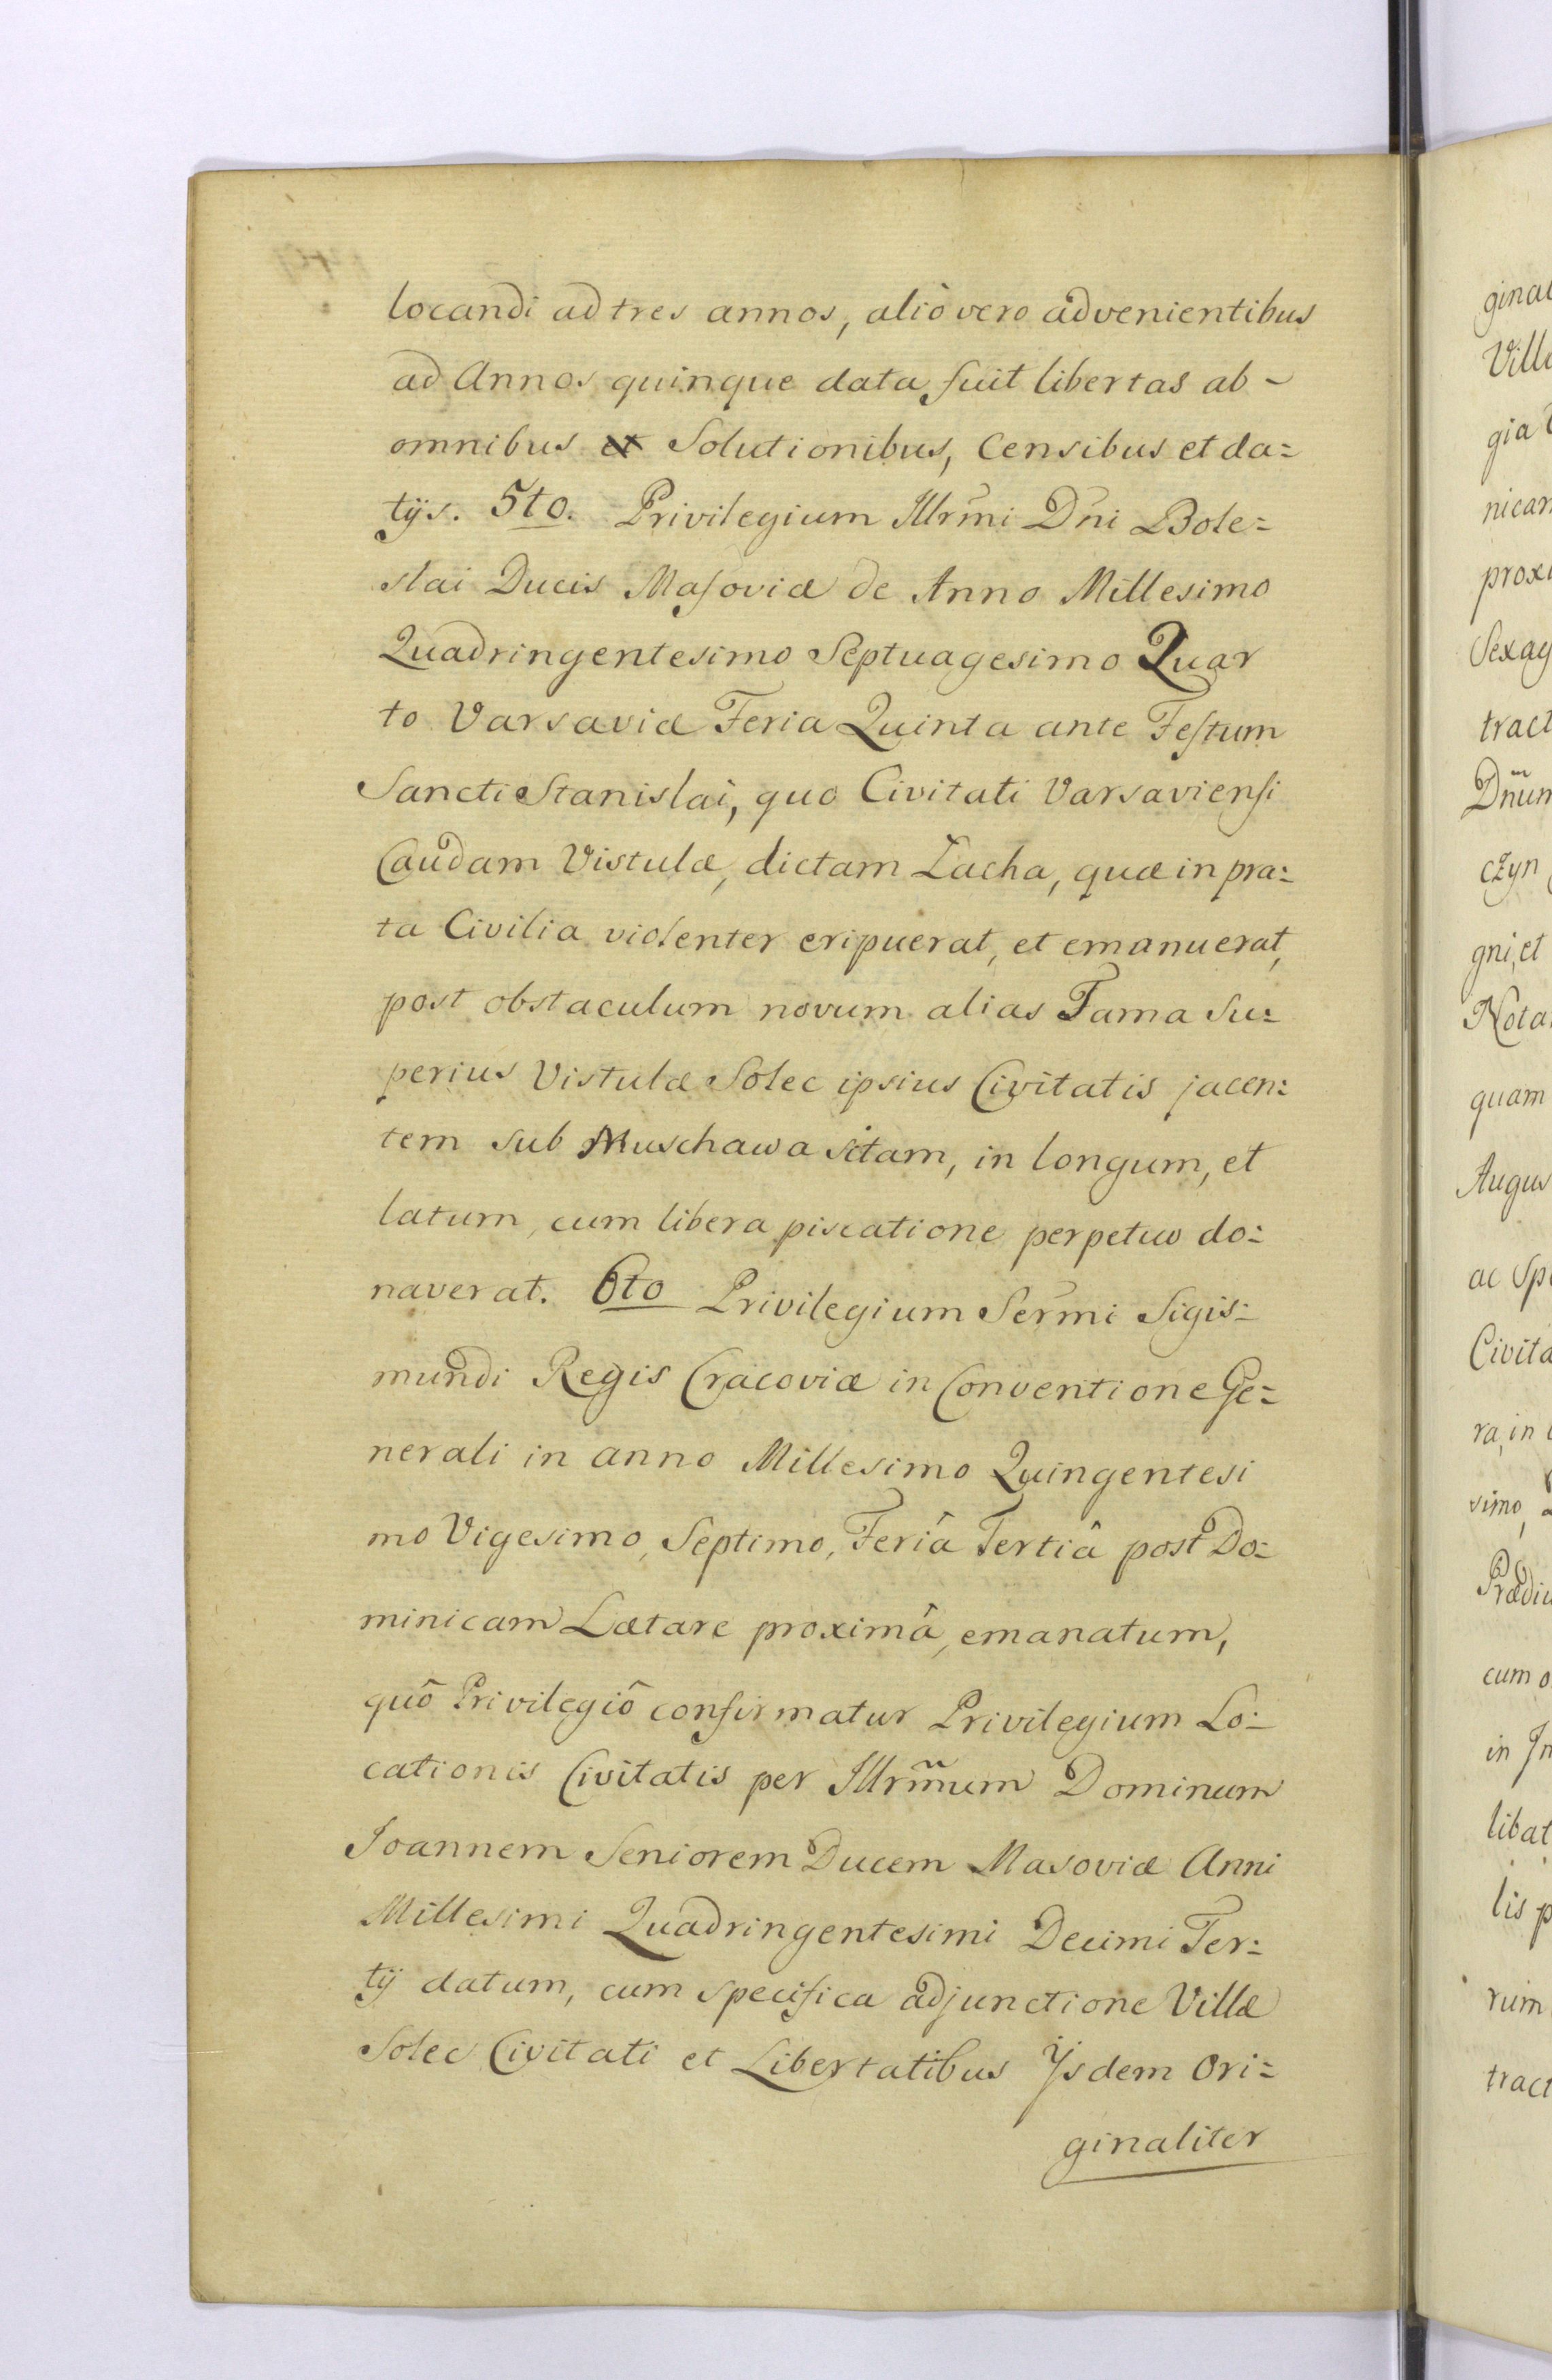 locandi ad tres annos, aliò vero advenientibus
ad Annos quinque data fuit libertas ab -
omnibus et Solutionibus, Censibus et da=
tijs. 5to. Privilegium Illrm̃i Dñi Bole=
slai Ducis Masoviæ de Anno Millesimo
Quadringentesimo Septuagesimo Quar
to Varsaviæ Feria Quinta ante Festum
Sancti Stanislai, quo Civitati Varsaviensi
Caudam Vistulæ, dictam Lacha, quæ in pra=
ta Civilia violenter eripuerat, et emanuerat,
post obstaculum novum alias Tama Su=
perius Vistulæ Solec ipsius Civitatis jacen=
tem sub Muschawa sitam, in longum, et
latum, cum libera piscatione perpetuo do=
naverat. 6to Privilegium Serm̃i Sigis=
mundi Regis Cracoviæ in Conventione Ge=
nerali in anno Millesimo Quingentesi
mo Vigesimo, Septimo, Feriâ Tertiâ post Do=
minicam Lætare proximâ, emanatum,
quô Privilegiô confirmatur Privilegium Lo=
cationis Civitatis per Illrm̃um Dominum
Joannem Seniorem Ducem Masoviæ Anni
Millesimi Quadringentesimi Decimi Ter=
tij datum, cum specifica adjunctione Villæ
Solec Civitati et Libertatibus Ijsdem Ori=
ginaliter
ginal
Villa
gia
nicam
proxi
Sexag
tract
Dñum
czyn
gni, et
Nota
quam
Augus
ac Spe
Civita
ra, in
simo,
Prædiu
cum o
in Jn
libat
lis p
rum
tract